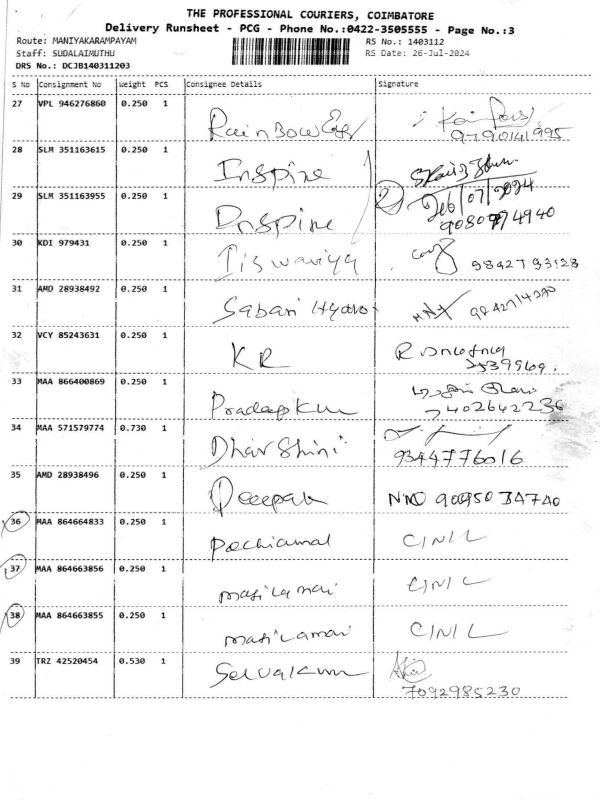 THE PROFESSIONAL COURIERS, COIMBATORE
Delivery Runsheet - PCG - Phone No.:0422-3505555 - Page No.:3
Route: MANIYAKARAMPAYAM RS No.: 1403112
Staff: SUDALAIMUTHU RS Date: 26-Jul-2024
DRS No.: DCJB140311203
S No Consignment No Weight PCS Consignee Details Signature
27 VPL 946276860 0.250 1 Rainbow 9790141995
28 SLM 351163615 0.250 1 Inspire
29 SLM 351163955 0.250 1 Inspire
30 KDI 979431 0.250 1 Iiswariya 9842793128
31 AMD 28938492 0.250 1 Sabari Hydro
32 VCY 85243631 0.250 1 KR
33 MAA 866400869 0.250 1 Pradeep Kum 7402642236
34 MAA 571579774 0.730 1 Dharshini 9344776016
35 AMD 28938496 0.250 1 Deepak
36 MAA 864664833 0.250 1 Pechiamal C/N/L
37 MAA 864663856 0.250 1 masilamai C/N/L
38 MAA 864663855 0.250 1 masilamai C/N/L
39 TRZ 42520454 0.530 1 Selvakum
7092985230